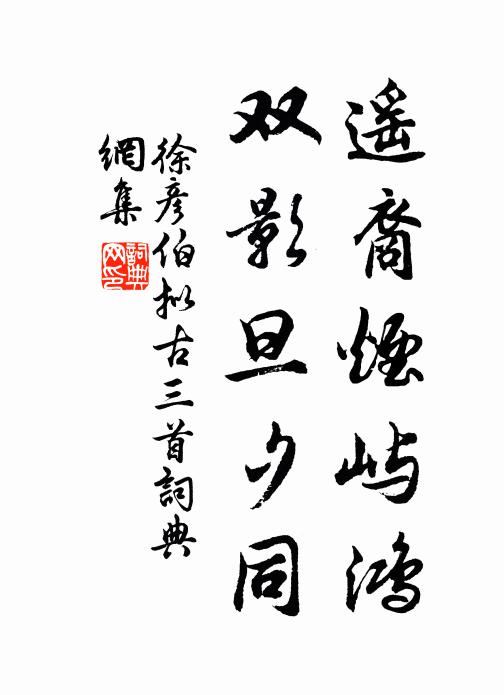 遥裔煙屿鴻
双影旦夕同
徐彦伯拟古三首詞典
網集
詞典网印